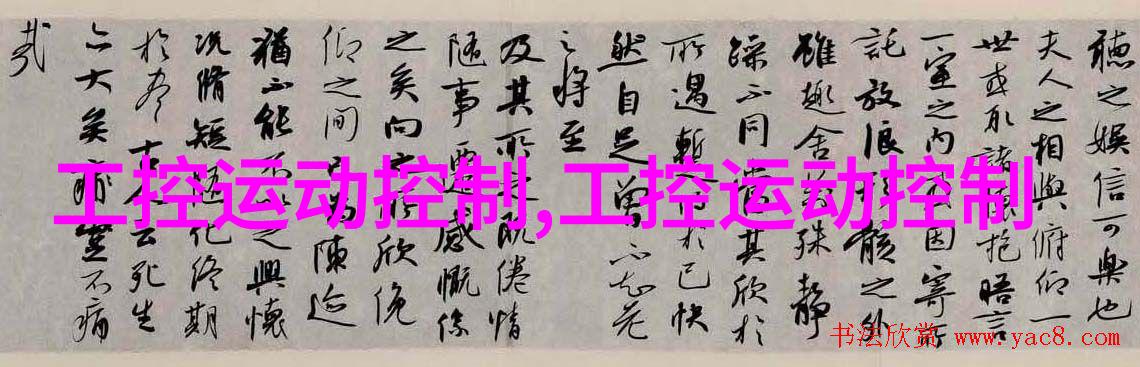 聽之娛信可樂也
夫人之相與俯仰一
世或取諸懷抱晤言
一室之内或因寄所
託放浪形骸之外
雖趣舍萬殊靜
躁不同當其欣於
所遇暫得於己快
然自足曾不知老
之將至
及其所之既倦情
隨事遷感慨係
之矣向之所欣俛
仰之間已為陳迹
猶不能不以之興懷
況脩短隨化終期
於盡古人云死生
亦大矣豈不痛
哉
工控运动控制,工控运动控制
书法欣赏 www.yac8.com